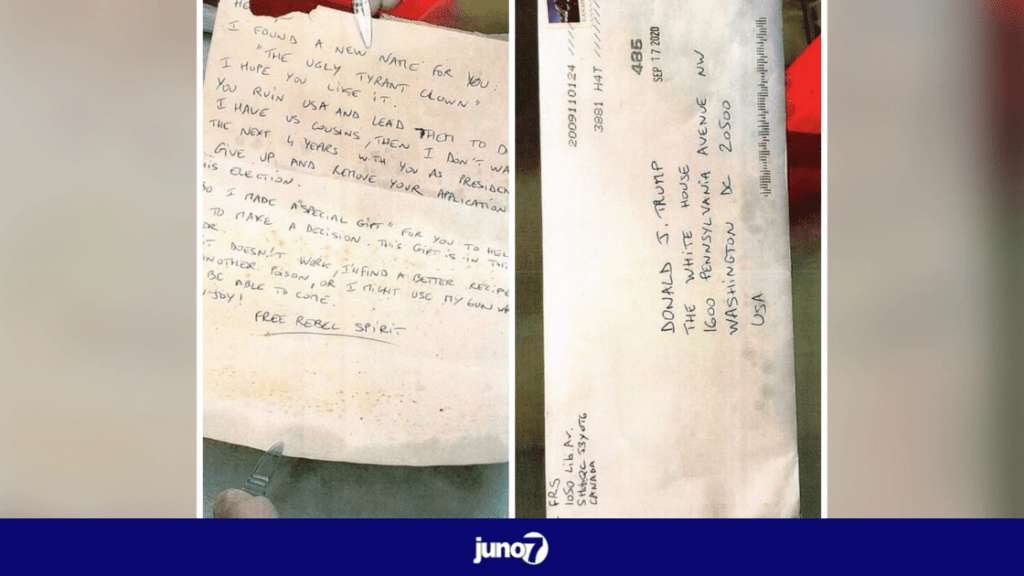 HE
I FOUND A NEW NAME FOR YOU:
"THE UGLY TYRANT CLOWN"
I HOPE YOU LIKE IT.
YOU RUIN USA AND LEAD THEM TO D
I HAVE US COUSINS, THEN I DON'T WA
THE NEXT 4 YEARS WITH YOU AS PRESIDEN
GIVE UP AND REMOVE YOUR APPLICATION
HIS ELECTION.
SO I MADE A "SPECIAL GIFT" FOR YOU TO HEL
TO MAKE A DECISION. THIS GIFT IS IN THI
R.
IT DOESN'T WORK, I'll FIND A BETTER RECIPE
ANOTHER POISON, OR I MIGHT USE MY GUN WH
BE ABLE TO COME.
JOY!
FREE REBEL SPIRIT
486
SEP 17 2020
2009110124
3881 H4T
DONALD J. TRUMP
THE WHITE HOUSE
1600 PENNSYLVANIA AVENUE NW
WASHINGTON DC 20500
USA
FRS
1050 Lib Av.
CANADA
juno7